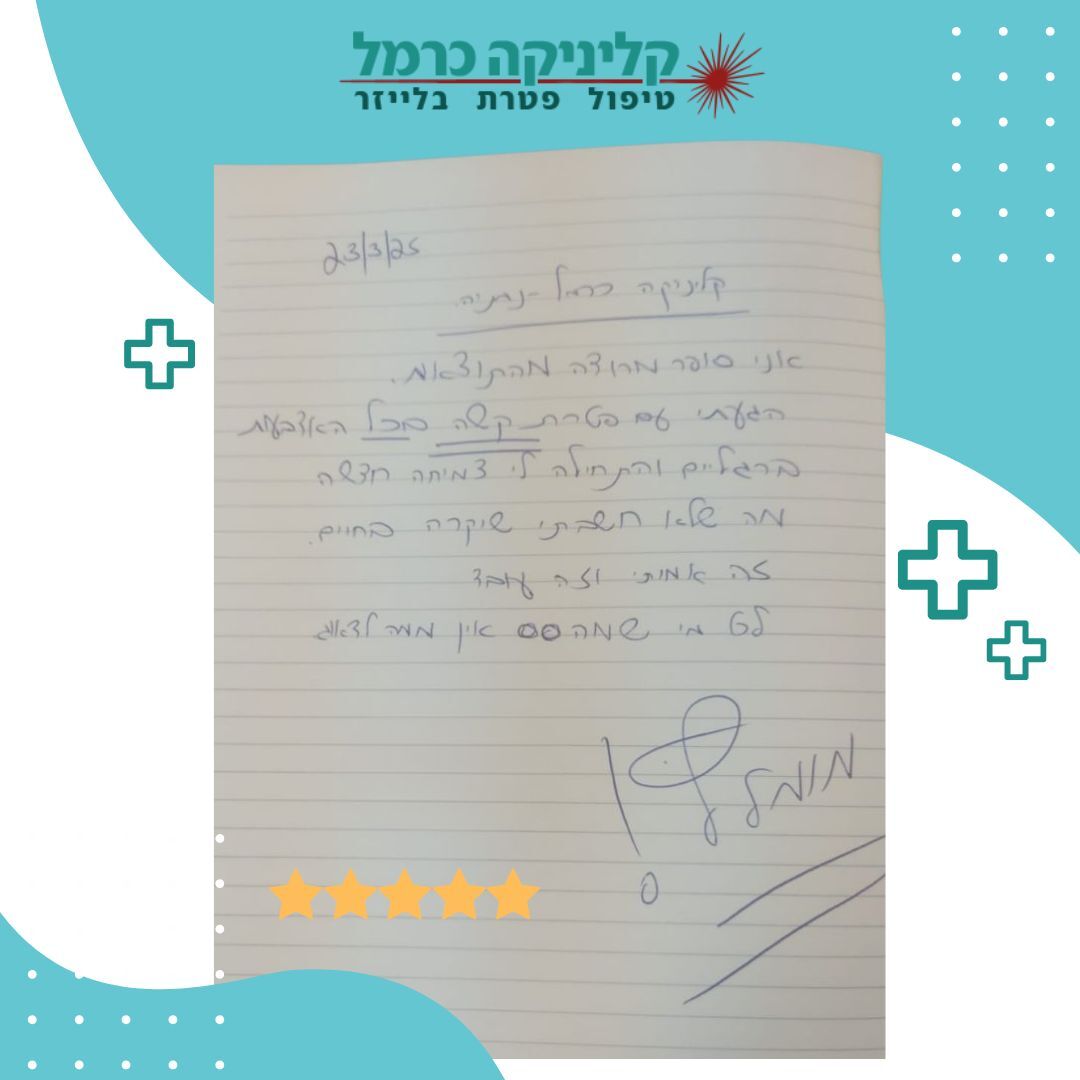 קליניקה כרמל
טיפול פטרת בלייזר
23/3/25
קליניקה כרמל - נתניה.
אני סופר מרוצה מהתוצאות.
הגעתי עם פטרת קשה בכל האצבעות
ברגליים והתחילה לי צמיחה חדשה
מה שלא חשבתי שיקרה בחיים.
זה אמיתי וזה עובד
לכל מי אין ממה לדאוג
מומלץ